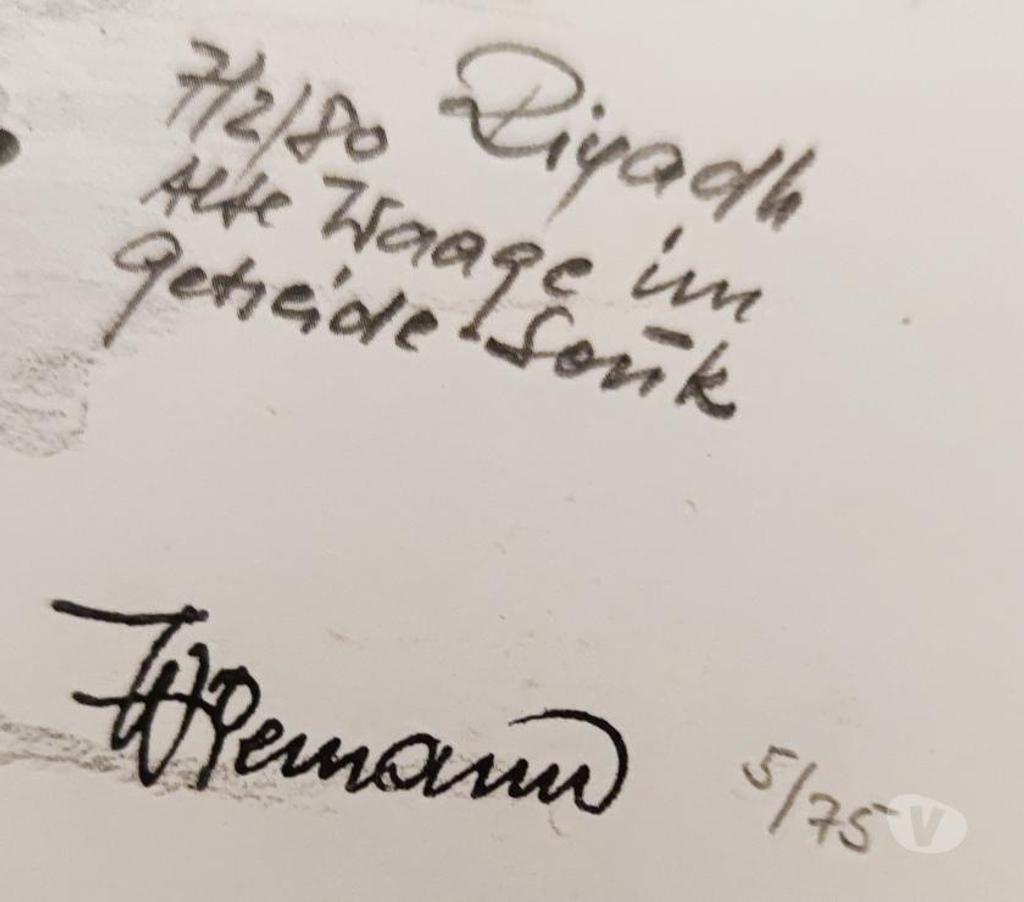 7/2/80 Riyadh
Alte Waage im
Getreide-Souk
5/75
V